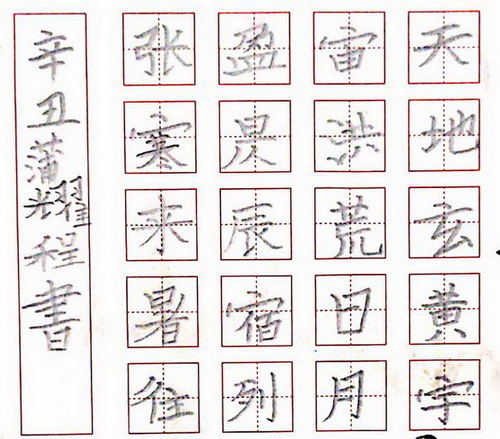 天地玄黄宇
宙洪荒日月
盈昃辰宿列
张寒来暑往
辛丑蒲耀程書